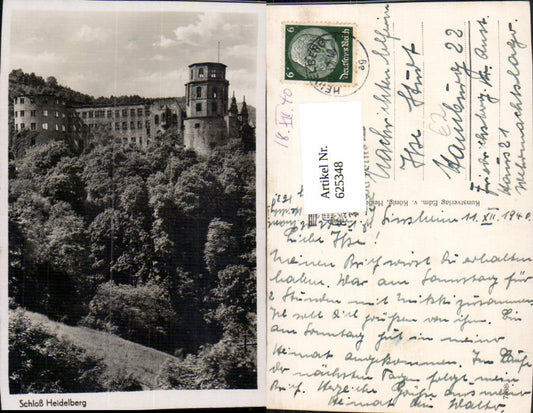 Schloß Heidelberg
18. XII. 40
6
Deutsches Reich
6
Artikel Nr.
625348
Kunstverlag Edm. v. König, Heidelberg
Nachrichtenhelferin
Ilse
Hamburg
Haus 21
Sinsheim 11. XII. 1940.
Liebe Ilse!
Meinen Brief wirst Du erhalten
haben. War am Samstag für
2 Stunden mit zusammen
soll Dich grüßen von ihm. Bin
am Sonntag gut in meiner
Heimat angekommen. Im Laufe
der nächsten Tage folgt mein
Brief. Herzliche Grüße aus meiner
Heimat Dein Walter.